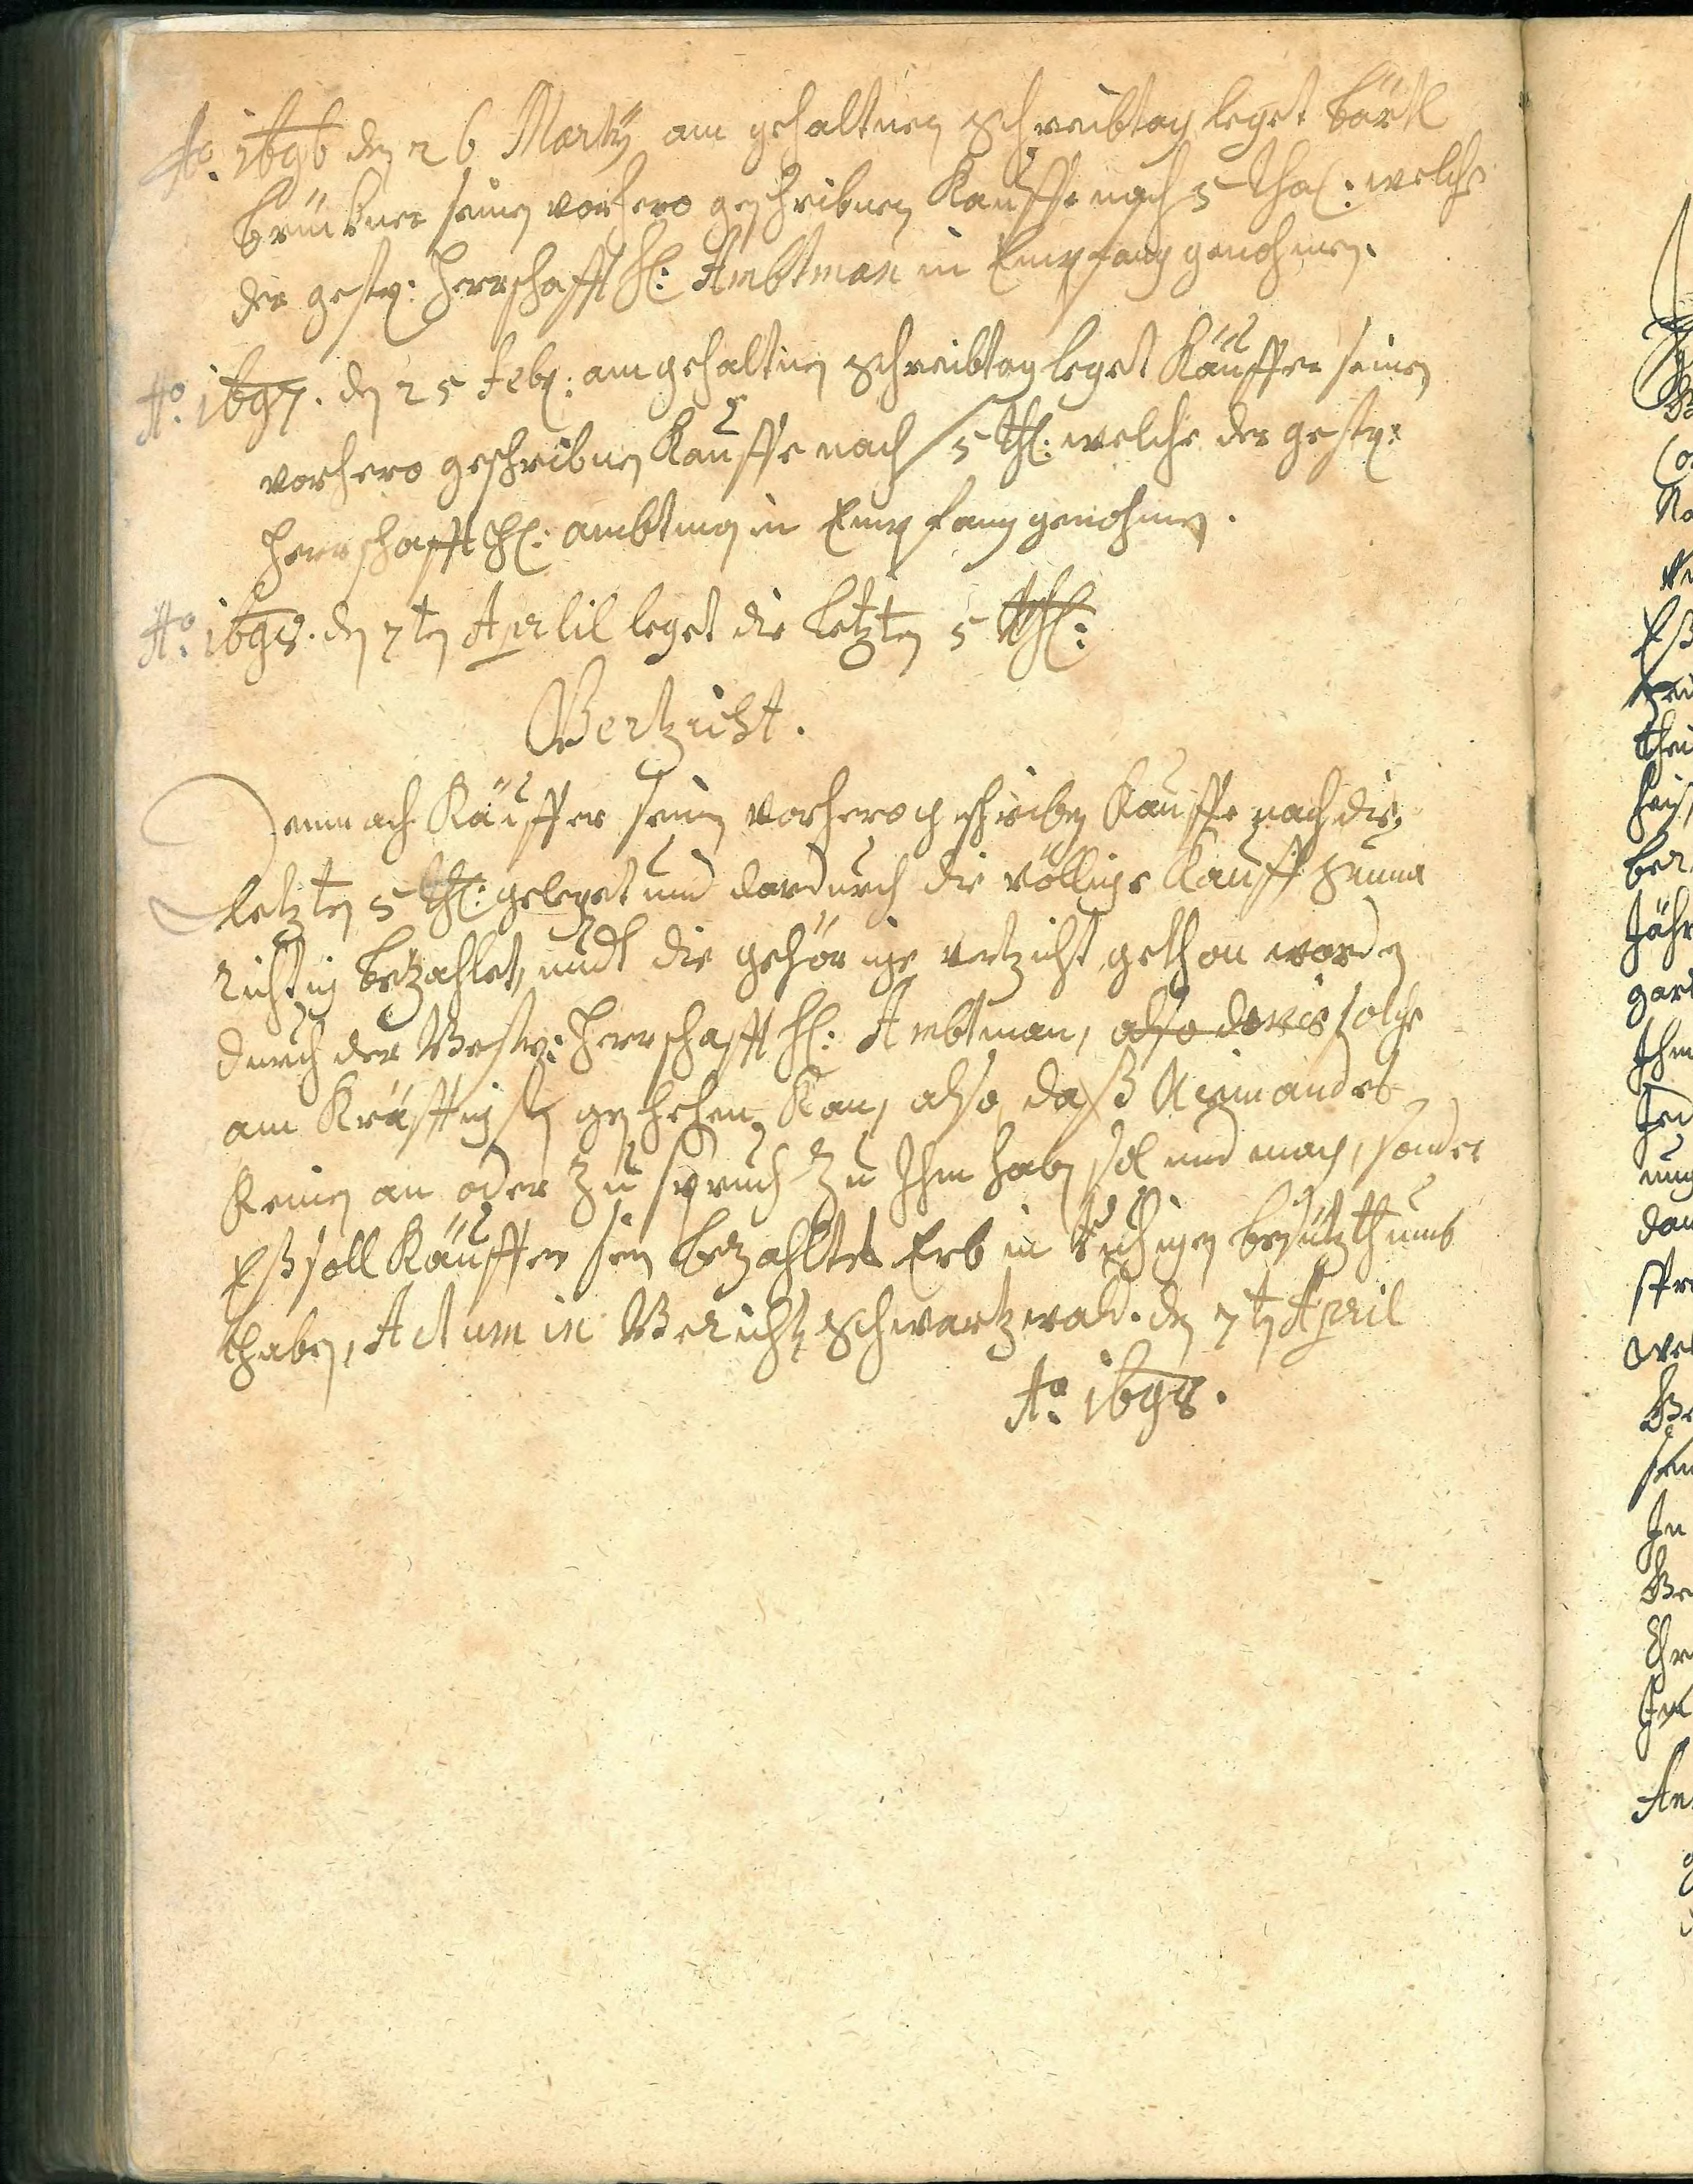 Ao. 1696 den 26 Marty am gehaltnen Schreibtag leget Bärtl
Brückner seinen vorhero geschribnen Kauffe nach 5 Thal: welche
der gestr: Herrschafft H: Ambtman in Empfang genohmen.
Ao. 1697. den 25 Feb: am gehaltnen Schreibtag leget Käuffer seinen
vorhero geschribnen Kauffe nach 5 th: welche der gestr:
Herrschafft H: ambtman in Empfang genohmen.
Ao. 1698. den 7ten Aprlil leget die letzten 5 th:
Vertzicht.
Demnach Käuffer seinen vorhero geschriben Kauffe nach die
letzten 5 th: geleget und dardurch die völlige Kauff Summa
richtig betzahlet, undt die gehörige vertzicht gethan worden
durch der Gestr: Herrschafft H: Ambtman, also solche
am Kräfftigsten geschehen Kan, also daß Niemandes
Keinen an oder Zu spruch Zu Ihm haben sol und mag, sonder
Eß soll Käuffer sein betzahltes Erb in ruhigen besitzthumb
haben, Actum in Gericht Schwartzwald. den 7ten April
Ao. 1698.